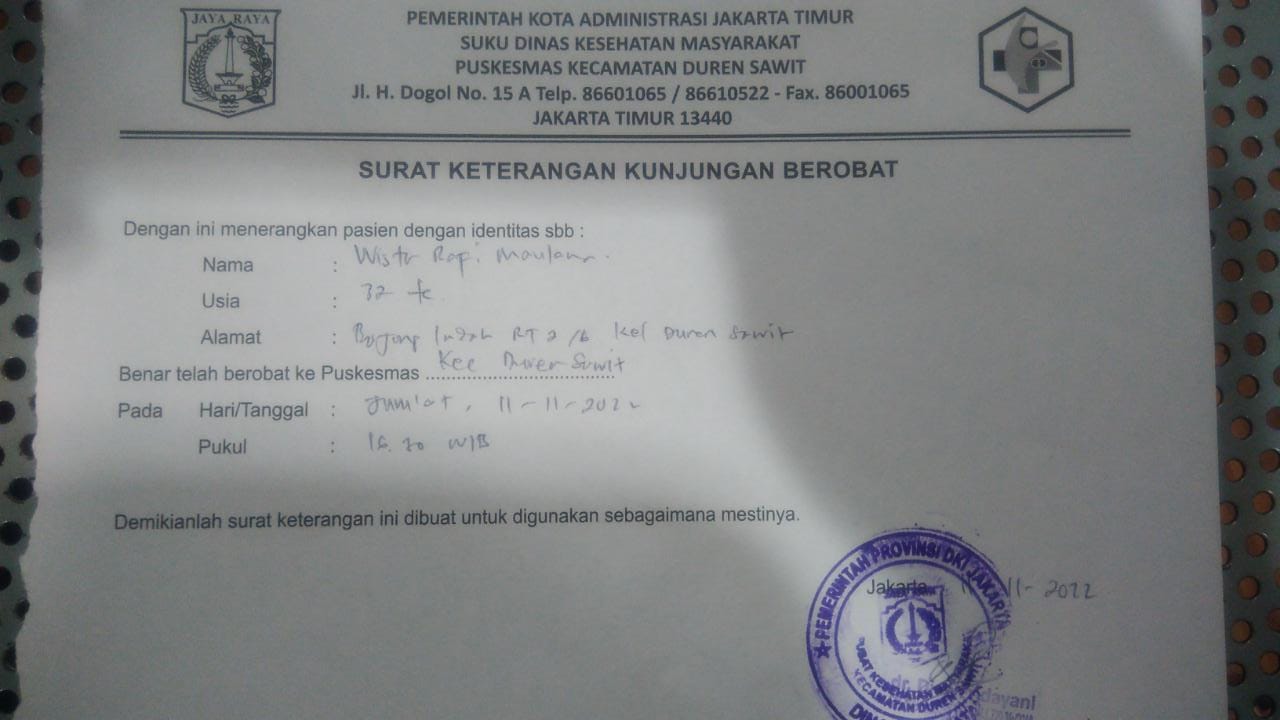 JAYA RAYA
PEMERINTAH KOTA ADMINISTRASI JAKARTA TIMUR
SUKU DINAS KESEHATAN MASYARAKAT
PUSKESMAS KECAMATAN DUREN SAWIT
Jl. H. Dogol No. 15 A Telp. 86601065 / 86610522 - Fax. 86001065
JAKARTA TIMUR 13440
SURAT KETERANGAN KUNJUNGAN BEROBAT
Dengan ini menerangkan pasien dengan identitas sbb :
Nama : Maulana
Usia : 32
Alamat : Indah RT 2/6 Kel Duren Sawit
Benar telah berobat ke Puskesmas Kec Duren Sawit
Pada Hari/Tanggal : Jum'at, 11-11-2022
Pukul : WIB
Demikianlah surat keterangan ini dibuat untuk digunakan sebagaimana mestinya.
Jakarta 11-2022
PEMERINTAH PROVINSI DKI JAKARTA
KECAMATAN DUREN SAWIT